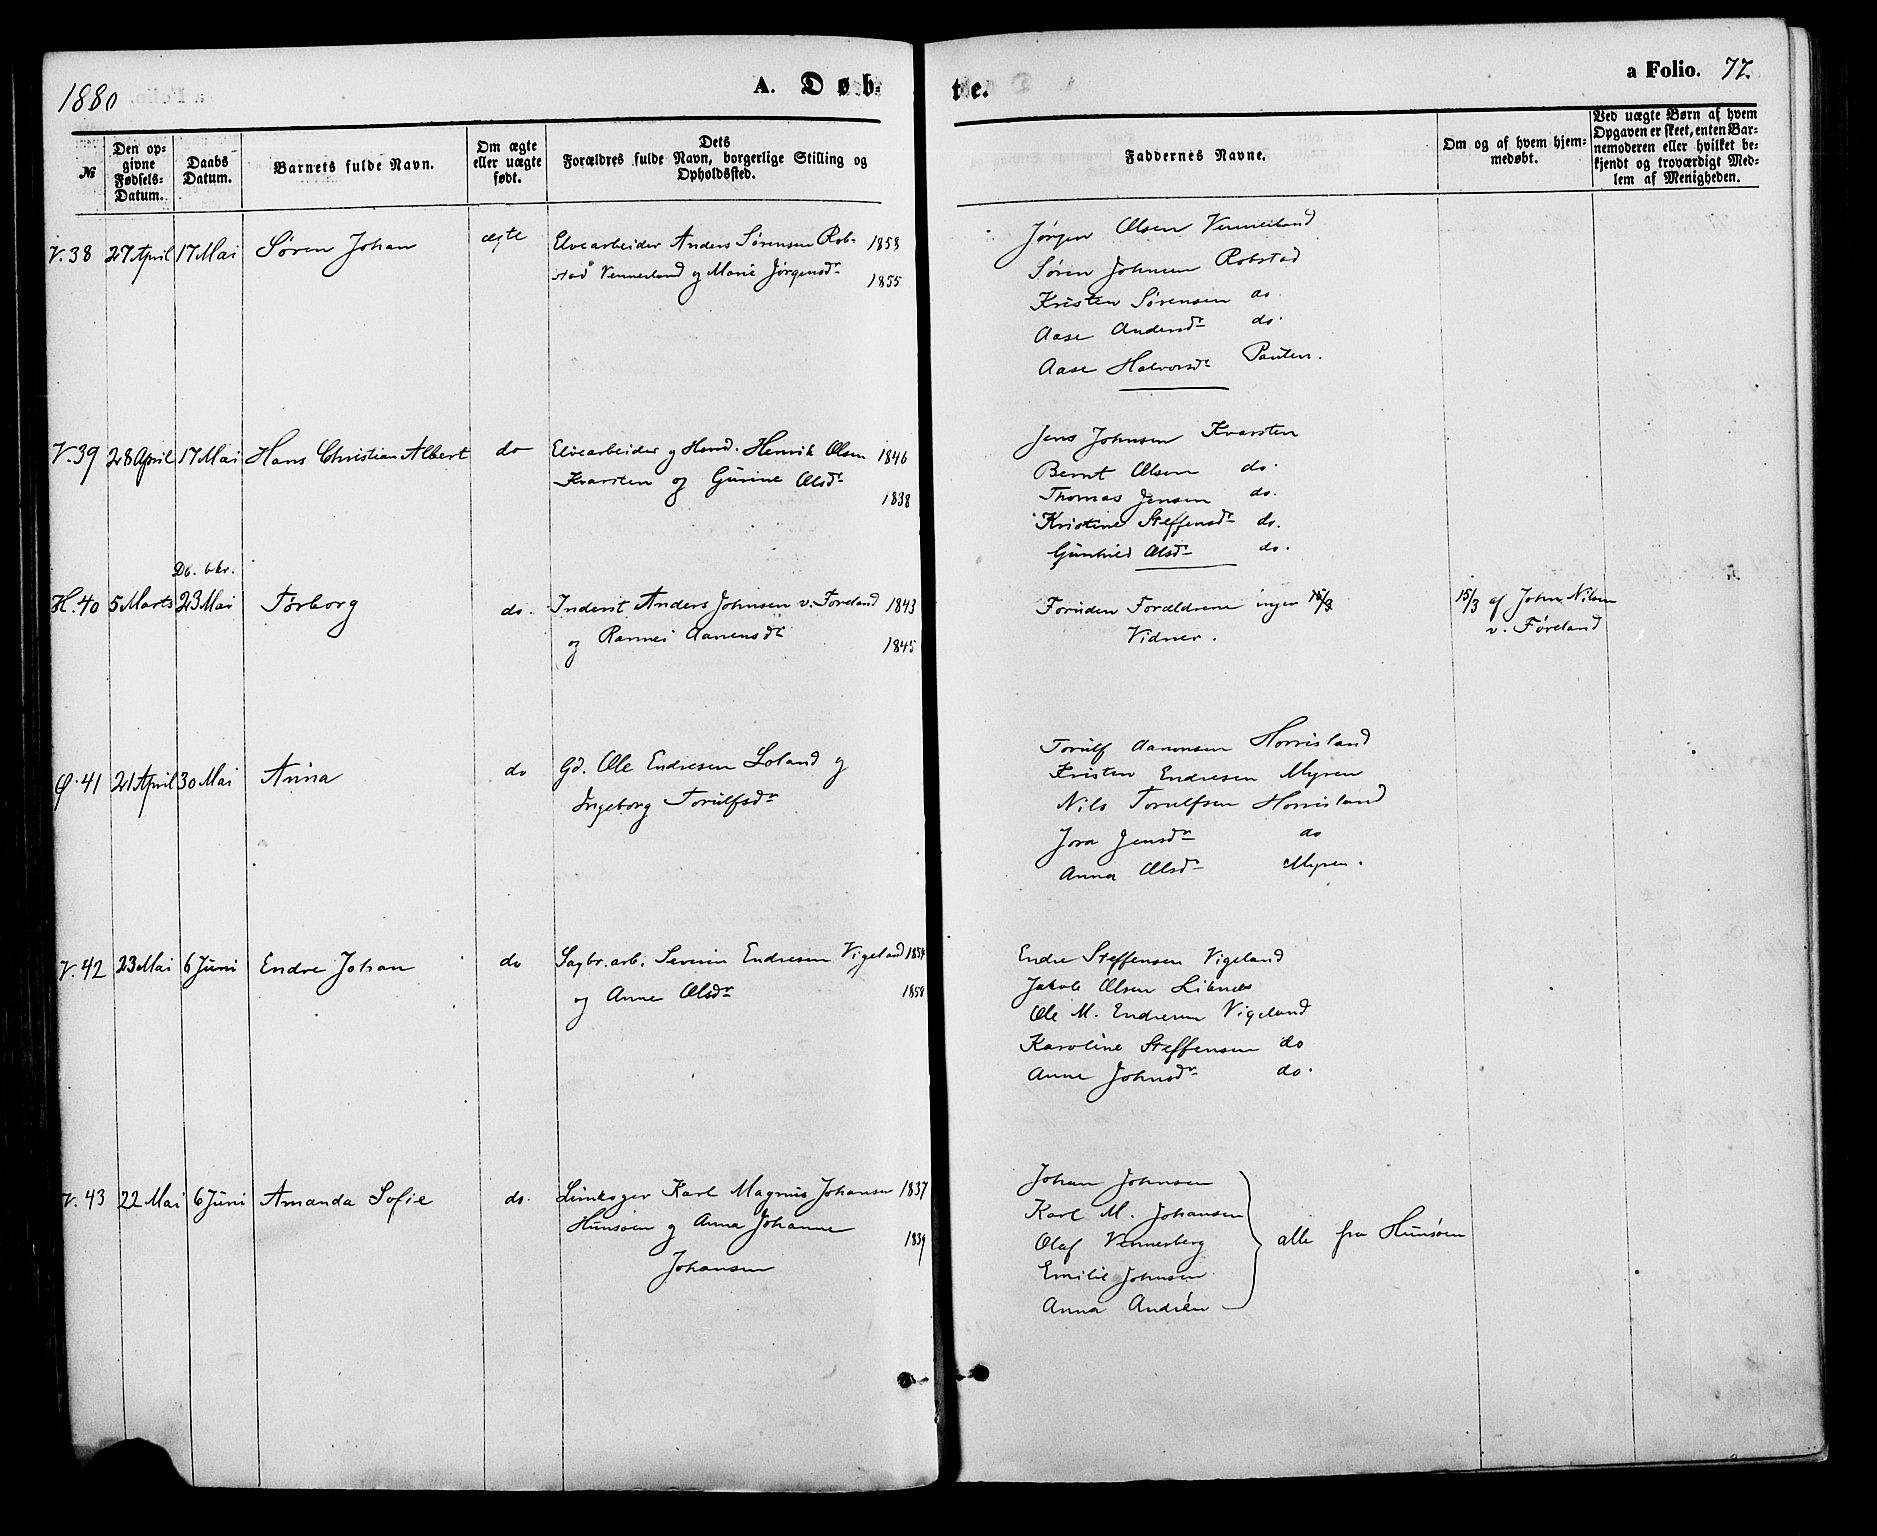 1880
A. Døb-
te.
a Folio. 77.
№
Den op-
givne
Fødsels-
Datum.
Daabs
Datum.
Barnets fulde Navn.
Om ægte
eller uægte
født.
Dets
Forældres fulde Navn, borgerlige Stilling og
Opholdssted.
Faddernes Navne.
Om og af hvem hjem-
medøbt.
Ved uægte Børn af hvem
Opgaven er skeet, enten Bar-
nemoderen eller hvilket be-
kjendt og troværdigt Med-
lem af Menigheden.
V. 38 27 April 17 Mai Søren Johan ægte
Elvearbeider Anders Sørensen Rob- 1858
stad Vennerland og Marie Jørgensdr 1855
Jørgen Olsen Vennerland
Søren Johnsen Robstad
Kristen Sørensen do.
Aase Andersdr do.
Aase Halvorsdr Pauten.
V. 39 28 April 17 Mai Hans Christian Albert do
Elvearbeider g Hmd. Henrik Olsen 1846
Kvarsten og Gurine Olsdr
1838
Jens Johnsen Kvarsten
Bernt Olsen do.
Thomas Jensen do.
Kristine Steffensdr do.
Gunhild Olsdr do.
Db. bkr.
H. 40 5 Marts 23 Mai Torborg do.
Inderst Anders Johnsen v. Føreland 1843
og Rannei Aanensdr 1845
Foruden Forældrene ingen
Vidner.
15/3 af John Nilsen
v. Føreland
Ø. 41 21 April 30 Mai Anna do
Gd. Ole Endresen Loland og
Ingeborg Torulfsdr
Torulf Aanonsen Horrisland
Kristen Endresen Myren
Nils Torulfsen Horrisland
Jora Jensdr do
Anna Olsdr Myren.
V. 42 23 Mai 6 Juni Endre Johan do
Sagbr. arb. Severin Endresen Vigeland 1854
og Anne Olsdr 1858
Endre Steffensen Vigeland
Jakob Olsen Liknes
Ole M. Endresen Vigeland
Karoline Steffensen do
Anne Johnsdr do.
V. 43 22 Mai 6 Juni Amanda Sofie do.
Karl Magnus Johansen 1837
Hunsøen og Anna Johanne
1839
Johansen
Johan Johnsen
Karl M. Johansen
Olaf Vennerberg
Emilie Johnsen
Anna Andrén
alle fra Hunsøen